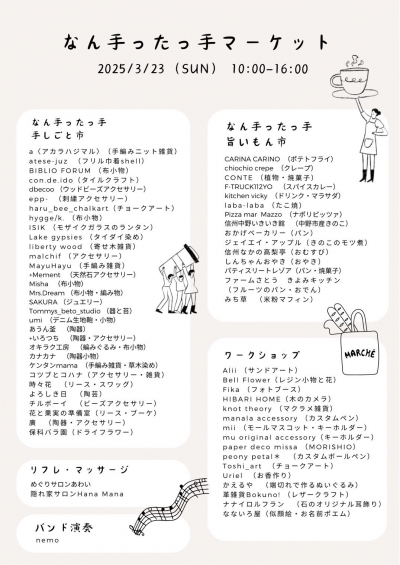 なん手ったっ手マーケット
2025/3/23 (SUN) 10:00-16:00
なん手ったっ手
手しごと市
a(アカラハジマル)(手編みニット雑貨)
atese-juz (フリル巾着shell)
BIBLIO FORUM (布小物)
con.de.ido(タイルクラフト)
dbecoo (ウッドビーズアクセサリー)
epp- (刺繍アクセサリー)
haru_bee_chalkart(チョークアート)
hygge/k. (布小物)
ISIK (モザイクガラスのランタン)
Lake gypsies (タイダイ染め)
liberty wood (寄せ木雑貨)
malchif (アクセサリー)
MayuHayu (手編み雑貨)
+Mement (天然石アクセサリー)
Misha (布小物)
Mrs.Dream (布小物・編み物)
SAKURA (ジュエリー)
Tommys_beto_studio (器と苔)
umi (デニム生地鞄・小物)
あうん窯 (陶器)
+いろつち (陶器・アクセサリー)
オキラク工房 (編みぐるみ・布小物)
カナカナ (陶器小物)
ケンタンmama (手編み雑貨・草木染め)
コツブとコハナ(アクセサリー・雑貨)
時々花 (リース・スワッグ)
よろしき日 (陶芸)
チルボーイ (ビーズアクセサリー)
花と果実の準備室(リース・ブーケ)
廣 (陶器・アクセサリー)
保科バラ園(ドライフラワー)
リフレ・マッサージ
めぐりサロンあわい
隠れ家サロンHana Mana
バンド演奏
nemo
なん手ったっ手
旨いもん市
CARINA CARINO (ポテトフライ)
chiochio crepe (クレープ)
CONTE (植物・焼菓子)
F-TRUCK112YO (スパイスカレー)
kitchen vicky (ドリンク・マラサダ)
laba-laba (たこ焼)
Pizza mar Mazzo (ナポリピッツァ)
信州中野いきいき館 (中野市産きのこ)
おかげベーカリー(パン)
ジェイエイ・アップル(きのこのモツ煮)
信州なかの高梨亭(おむすび)
しんちゃんおやき(おやき)
パティスリートレゾア(パン・焼菓子)
ファームさとう きよみキッチン
(フルーツのパン・おでん)
みち草 (米粉マフィン)
MARCHÉ
ワークショップ
Alii (サンドアート)
Bell Flower(レジン小物と花)
Fika (フォトブース)
HIBARI HOME(木のカメラ)
knot theory (マクラメ雑貨)
manala accessory (カスタムペン)
mii (モールマスコット・キーホルダー)
mu original accessory (キーホルダー)
paper deco missa (MORISHIO)
peony petal* (カスタムボールペン)
Toshi_art (チョークアート)
Uriel (お香作り)
かえるや (端切れで作るぬいぐるみ)
革雑貨Bokuno! (レザークラフト)
ナナイロルフラン (石のオリジナル耳飾り)
なないろ屋(似顔絵・お名前ポエム)